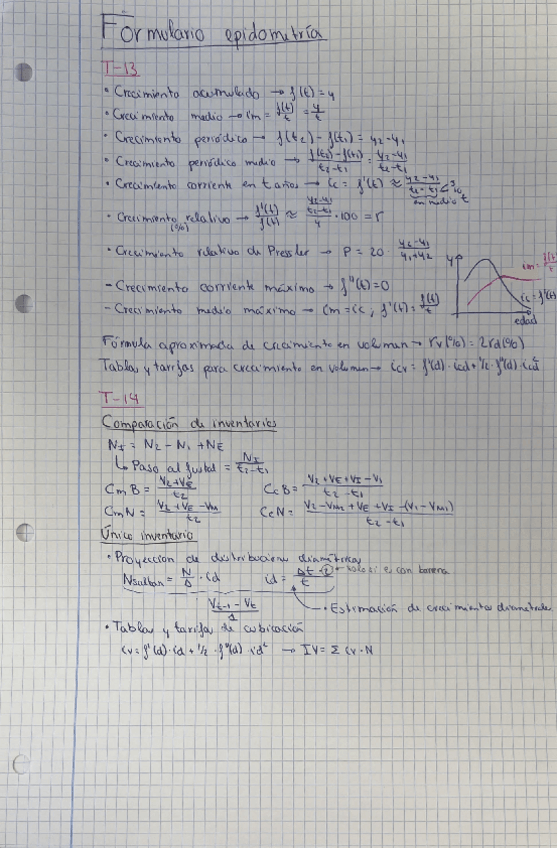 Formulario epidometría
T-13
· Crecimiento acumulado → f(t) = y
· Crecimiento medio → im = f(t)/t = y/t
· Crecimiento periódico → f(t2) - f(t1) = y2 - y1
· Crecimiento periódico medio → f(t2) - f(t1)/t2 - t1 = y2 - y1/t2 - t1
· Crecimiento corriente en t años → ic = f'(t) ≈ y2 - y1/t2 - t1
en medio t
· Crecimiento relativo → f'(t)/f(t) ≈ y2-y1/t2-t1/y · 100 = r
(%)
· Crecimiento relativo de Pressler → P = 20 · y2 - y1/y1 + y2
y
im = f(t)/t
- Crecimiento corriente máximo → f''(t) = 0
ic = f'(t)
- Crecimiento medio máximo → im = ic, f'(t) = f(t)/t
edad
Fórmula aproximada de crecimiento en volumen → rv(%) = 2rd(%)
Tablas y tarifas para crecimiento en volumen → icv = f'(d) · icd + 1/2 · f''(d) · icd²
T-14
Comparación de inventarios
NI = N2 - N1 + NE
↳ Paso al fustal = NI/t2 - t1
CmB = V2 + VE/t2
CcB = V2 + VE + VI - V1/t2 - t1
CmN = V2 + VE - VM/t2
CcN = V2 - VM2 + VE + VI - (V1 - VM1)/t2 - t1
Único inventario
· Proyección de distribuciones diamétricas
Nsaltan = N/Δ · id
id = Δt · 2/t ← solo si es con barrena
· Estimación de crecimientos diametrales
· Tablas y tarifas de cubicación
iv = f'(d) · id + 1/2 · f''(d) · id² → IV = Σ iv · N